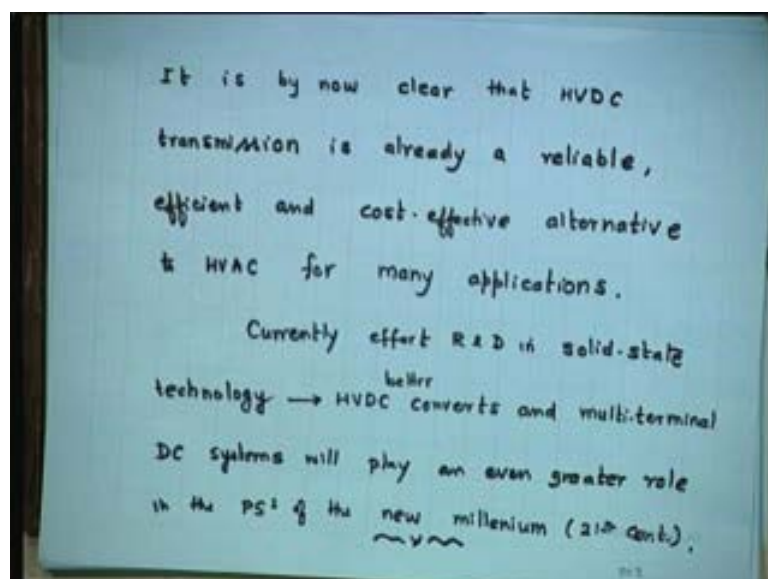 It is by now clear that HVDC
transmission is already a reliable,
efficient and cost-effective alternative
to HVAC for many applications.
Currently effort R & D in solid-state
technology → HVDC better converts and multi-terminal
DC systems will play an even greater role
in the PS's of the new millenium (21st Cent.).